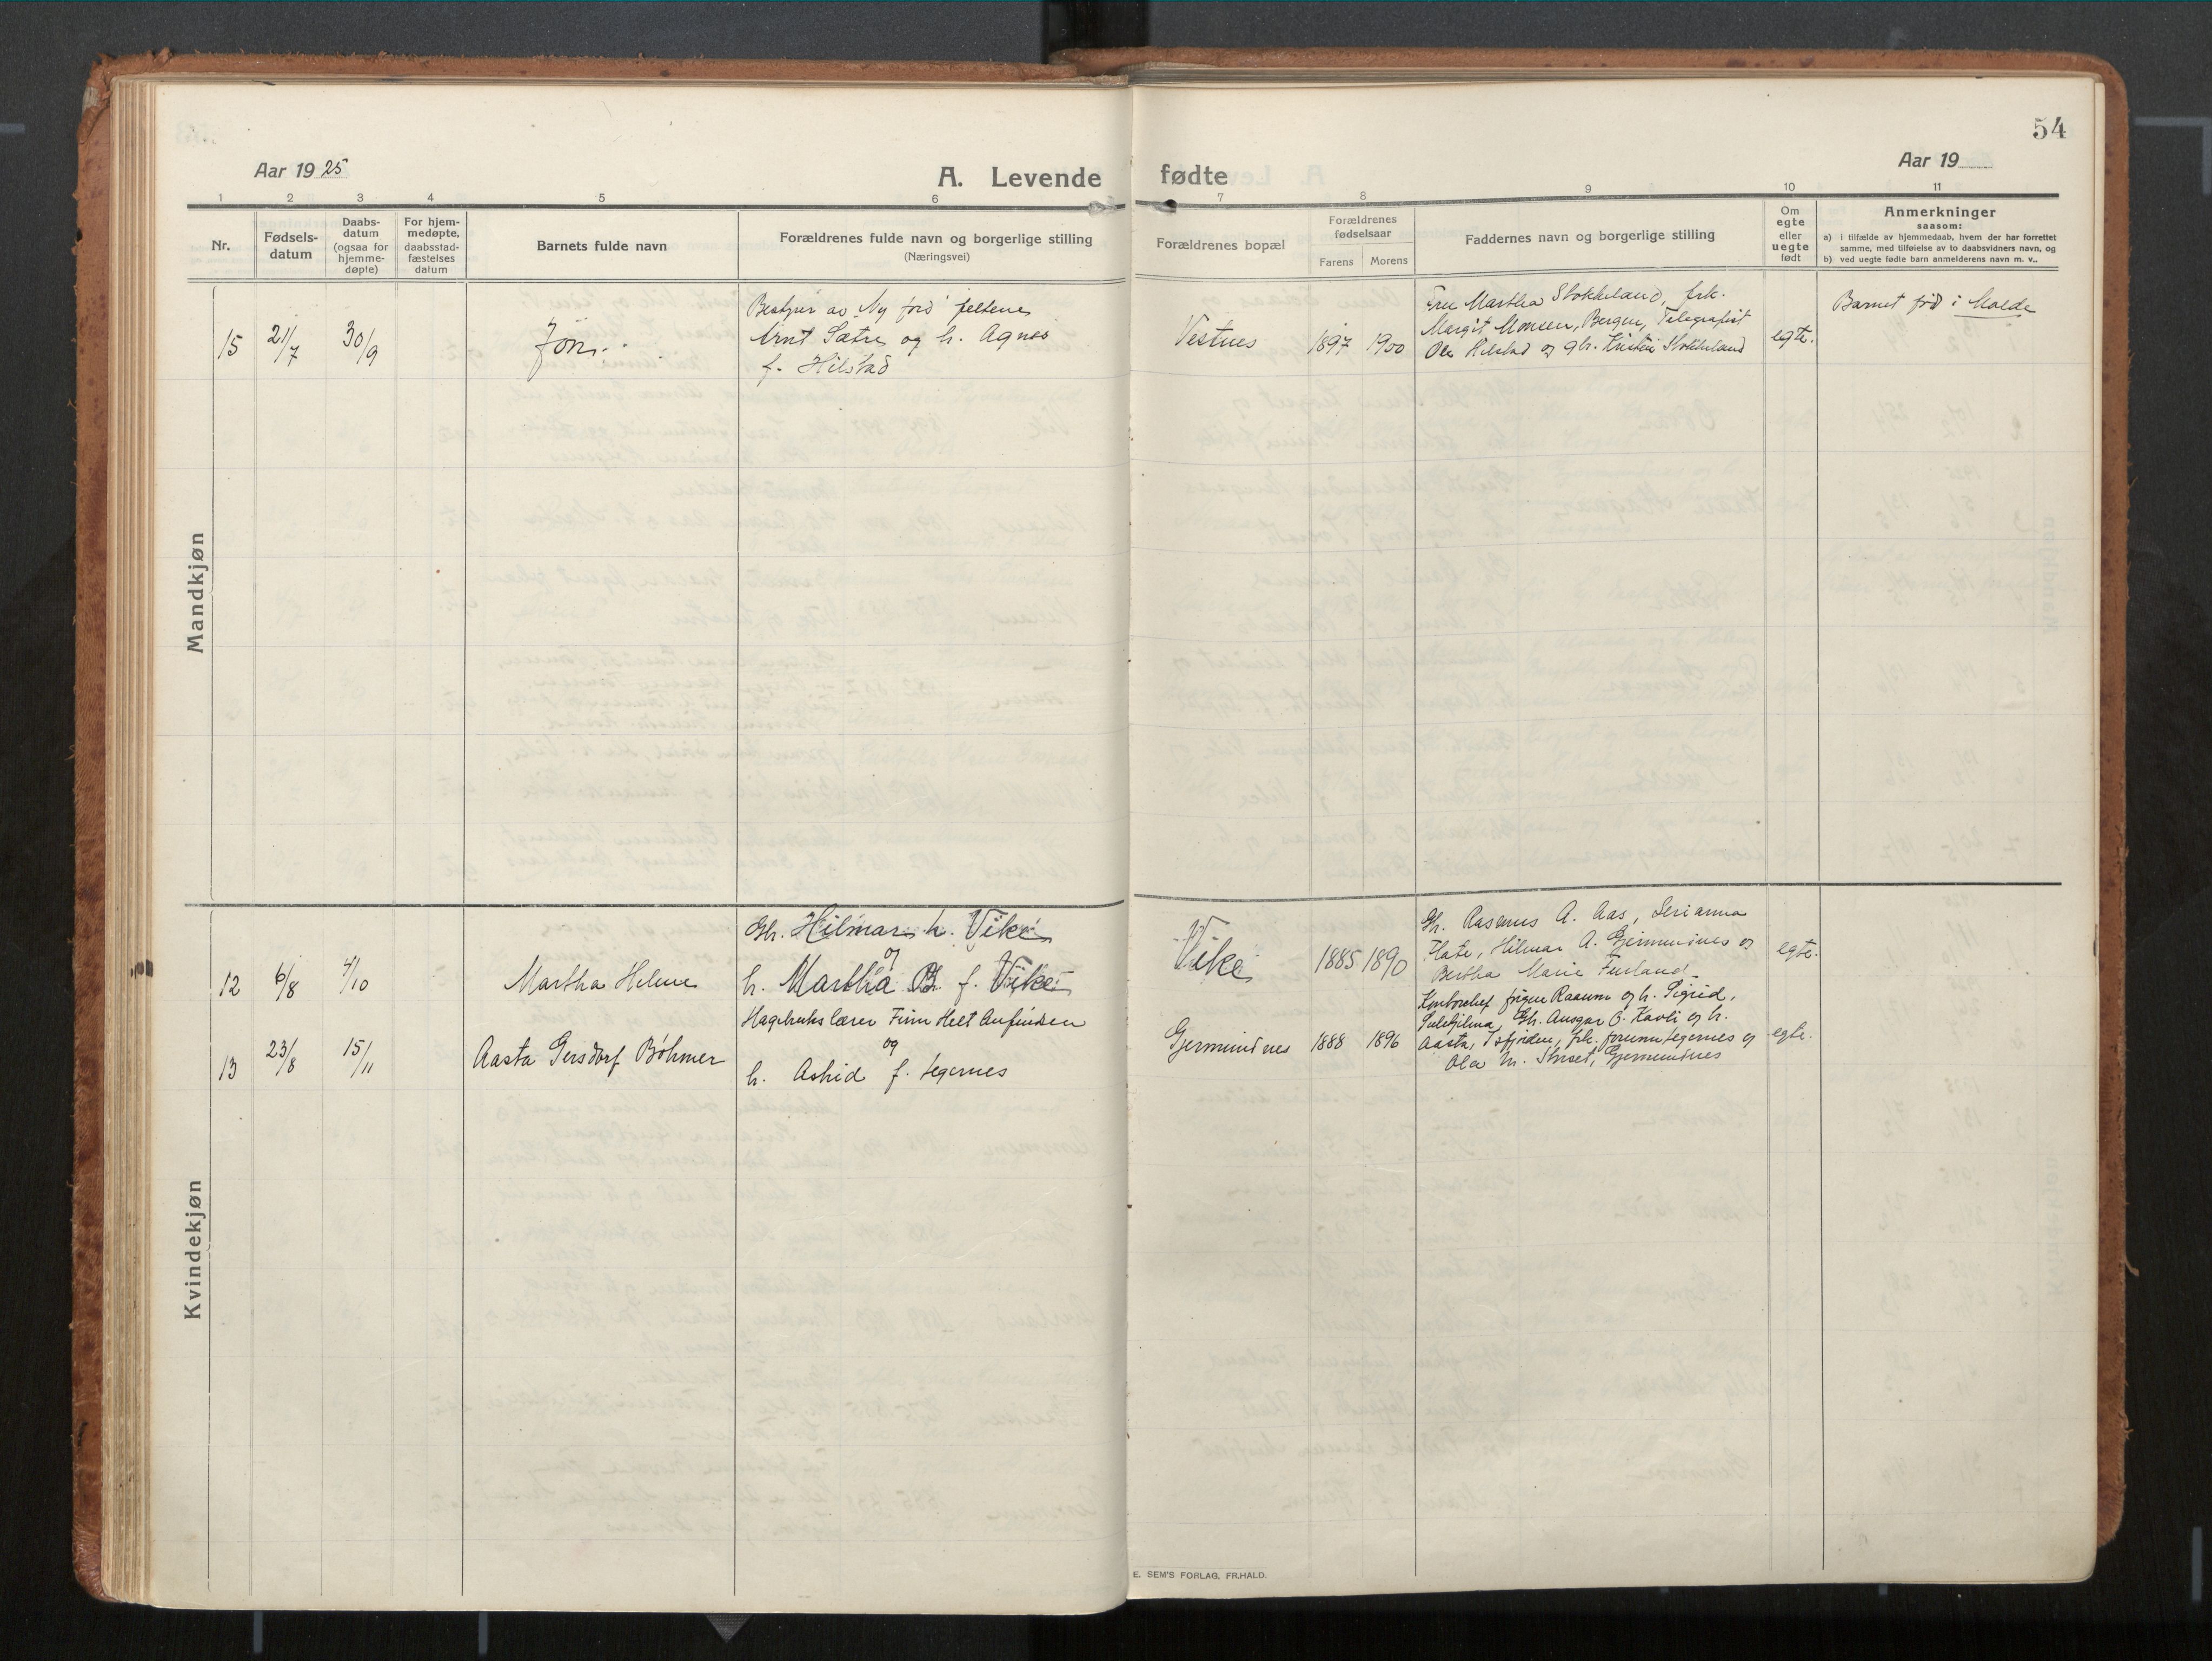 54
Aar 1925
A. Levende fødte
Aar 19
1 2 3 4 5 6 7 8 9 10 11
Nr.
Fødsels-
datum
Daabs-
datum
(ogsaa for
hjemme-
døpte)
For hjem-
medøpte,
daabsstad-
fæstelses
datum
Barnets fulde navn
Forældrenes fulde navn og borgerlige stilling
(Næringsvei)
Forældrenes bopæl
Forældrenes
fødselsaar
Farens
Morens
Faddernes navn og borgerlige stilling
Om
egte
eller
uegte
født
Anmerkninger
saasom:
a) i tilfælde av hjemmedaab, hvem der har forrettet
samme, med tilføielse av to daabsvidners navn, og
b) ved uegte fødte barn anmelderens navn m. v..
Mandkjøn
15
21/7
30/9
Jon.
Bestyrer av "Ny jord" feltene
Arnt Sætre og h. Agnes
f. Hilstad
Vestnes
1897
1900
Fru Martha Stokkeland, frk.
Margit Monsen, Bergen, Telegrafist
Ole Hilstad og gh. Kristin Stokkeland
egte.
Barnet fød i Molde
Kvindekjøn
12
6/8
4/10
Martha Helene
Gh. Hilmar h. Vike
og
h. Martha B. f. Vike
Vike
1885
1890
Gh. Rasmus A. Aas, Serianna
Flate, Hilmar A. Gjermundnes og
Bertha Marie Furland
egte.
13
23/8
15/11
Aasta Gersdorf Bøhmer
Hagebrukslærer Finn Helt Anfindsen
og
h. Astrid f. Legernes
Gjermundnes
1888
1896
Kontorchef Raaum og h. Sigrid,
Gh. Ansgar O. Kavli og h.
Aasta, Isfjorden, frk. Legernes og
Ola M. Gjermundnes
egte.
E. SEM'S FORLAG, FR.HALD.